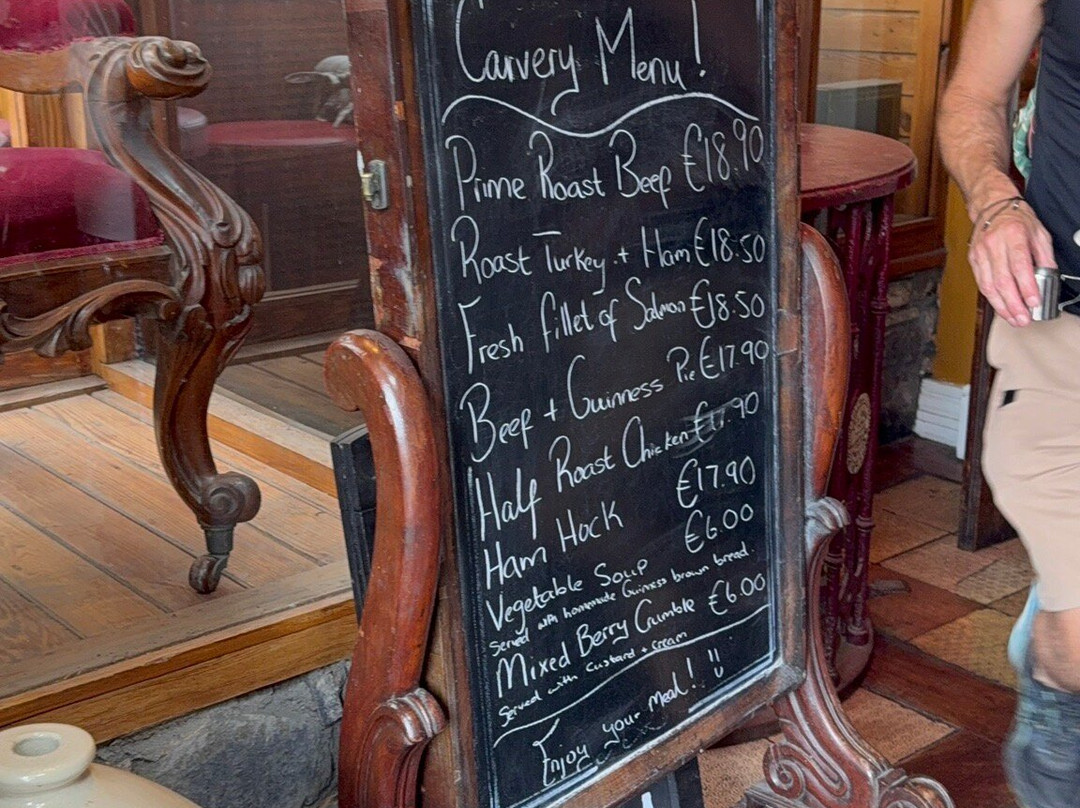 Carvery Menu!
Prime Roast Beef €18.90
Roast Turkey + Ham €18.50
Fresh fillet of Salmon €18.50
Beef + Guinness Pie €17.90
Half Roast Chicken €17.90
Ham Hock €17.90
Vegetable Soup €6.00
Served with homemade Guinness brown bread.
Mixed Berry Crumble €6.00
Served with custard + cream
Enjoy your meal! !!